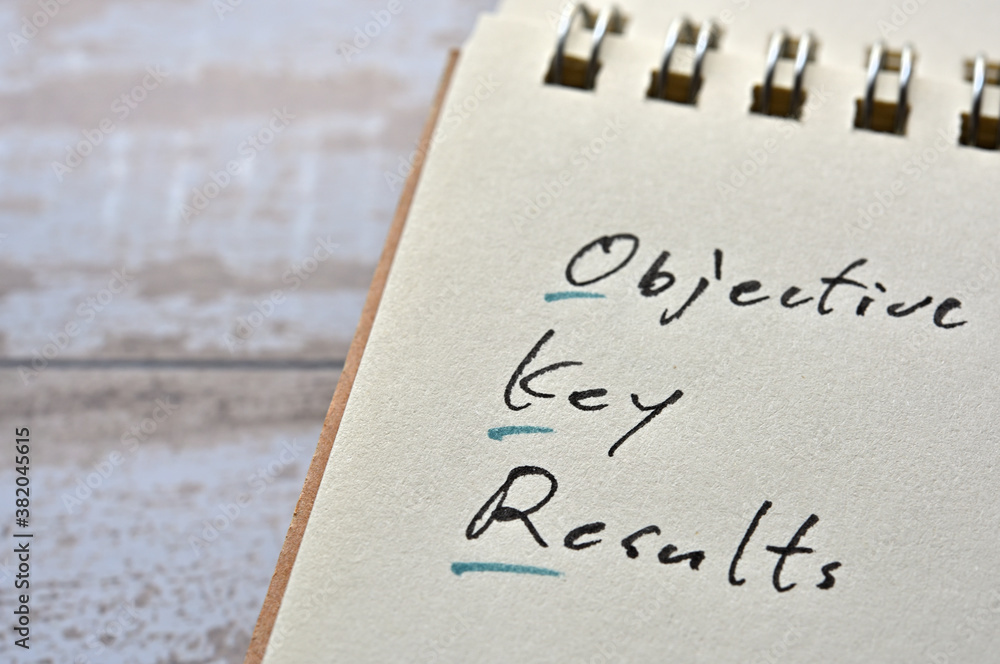 Objective
Key
Results
Adobe Stock | #382045615